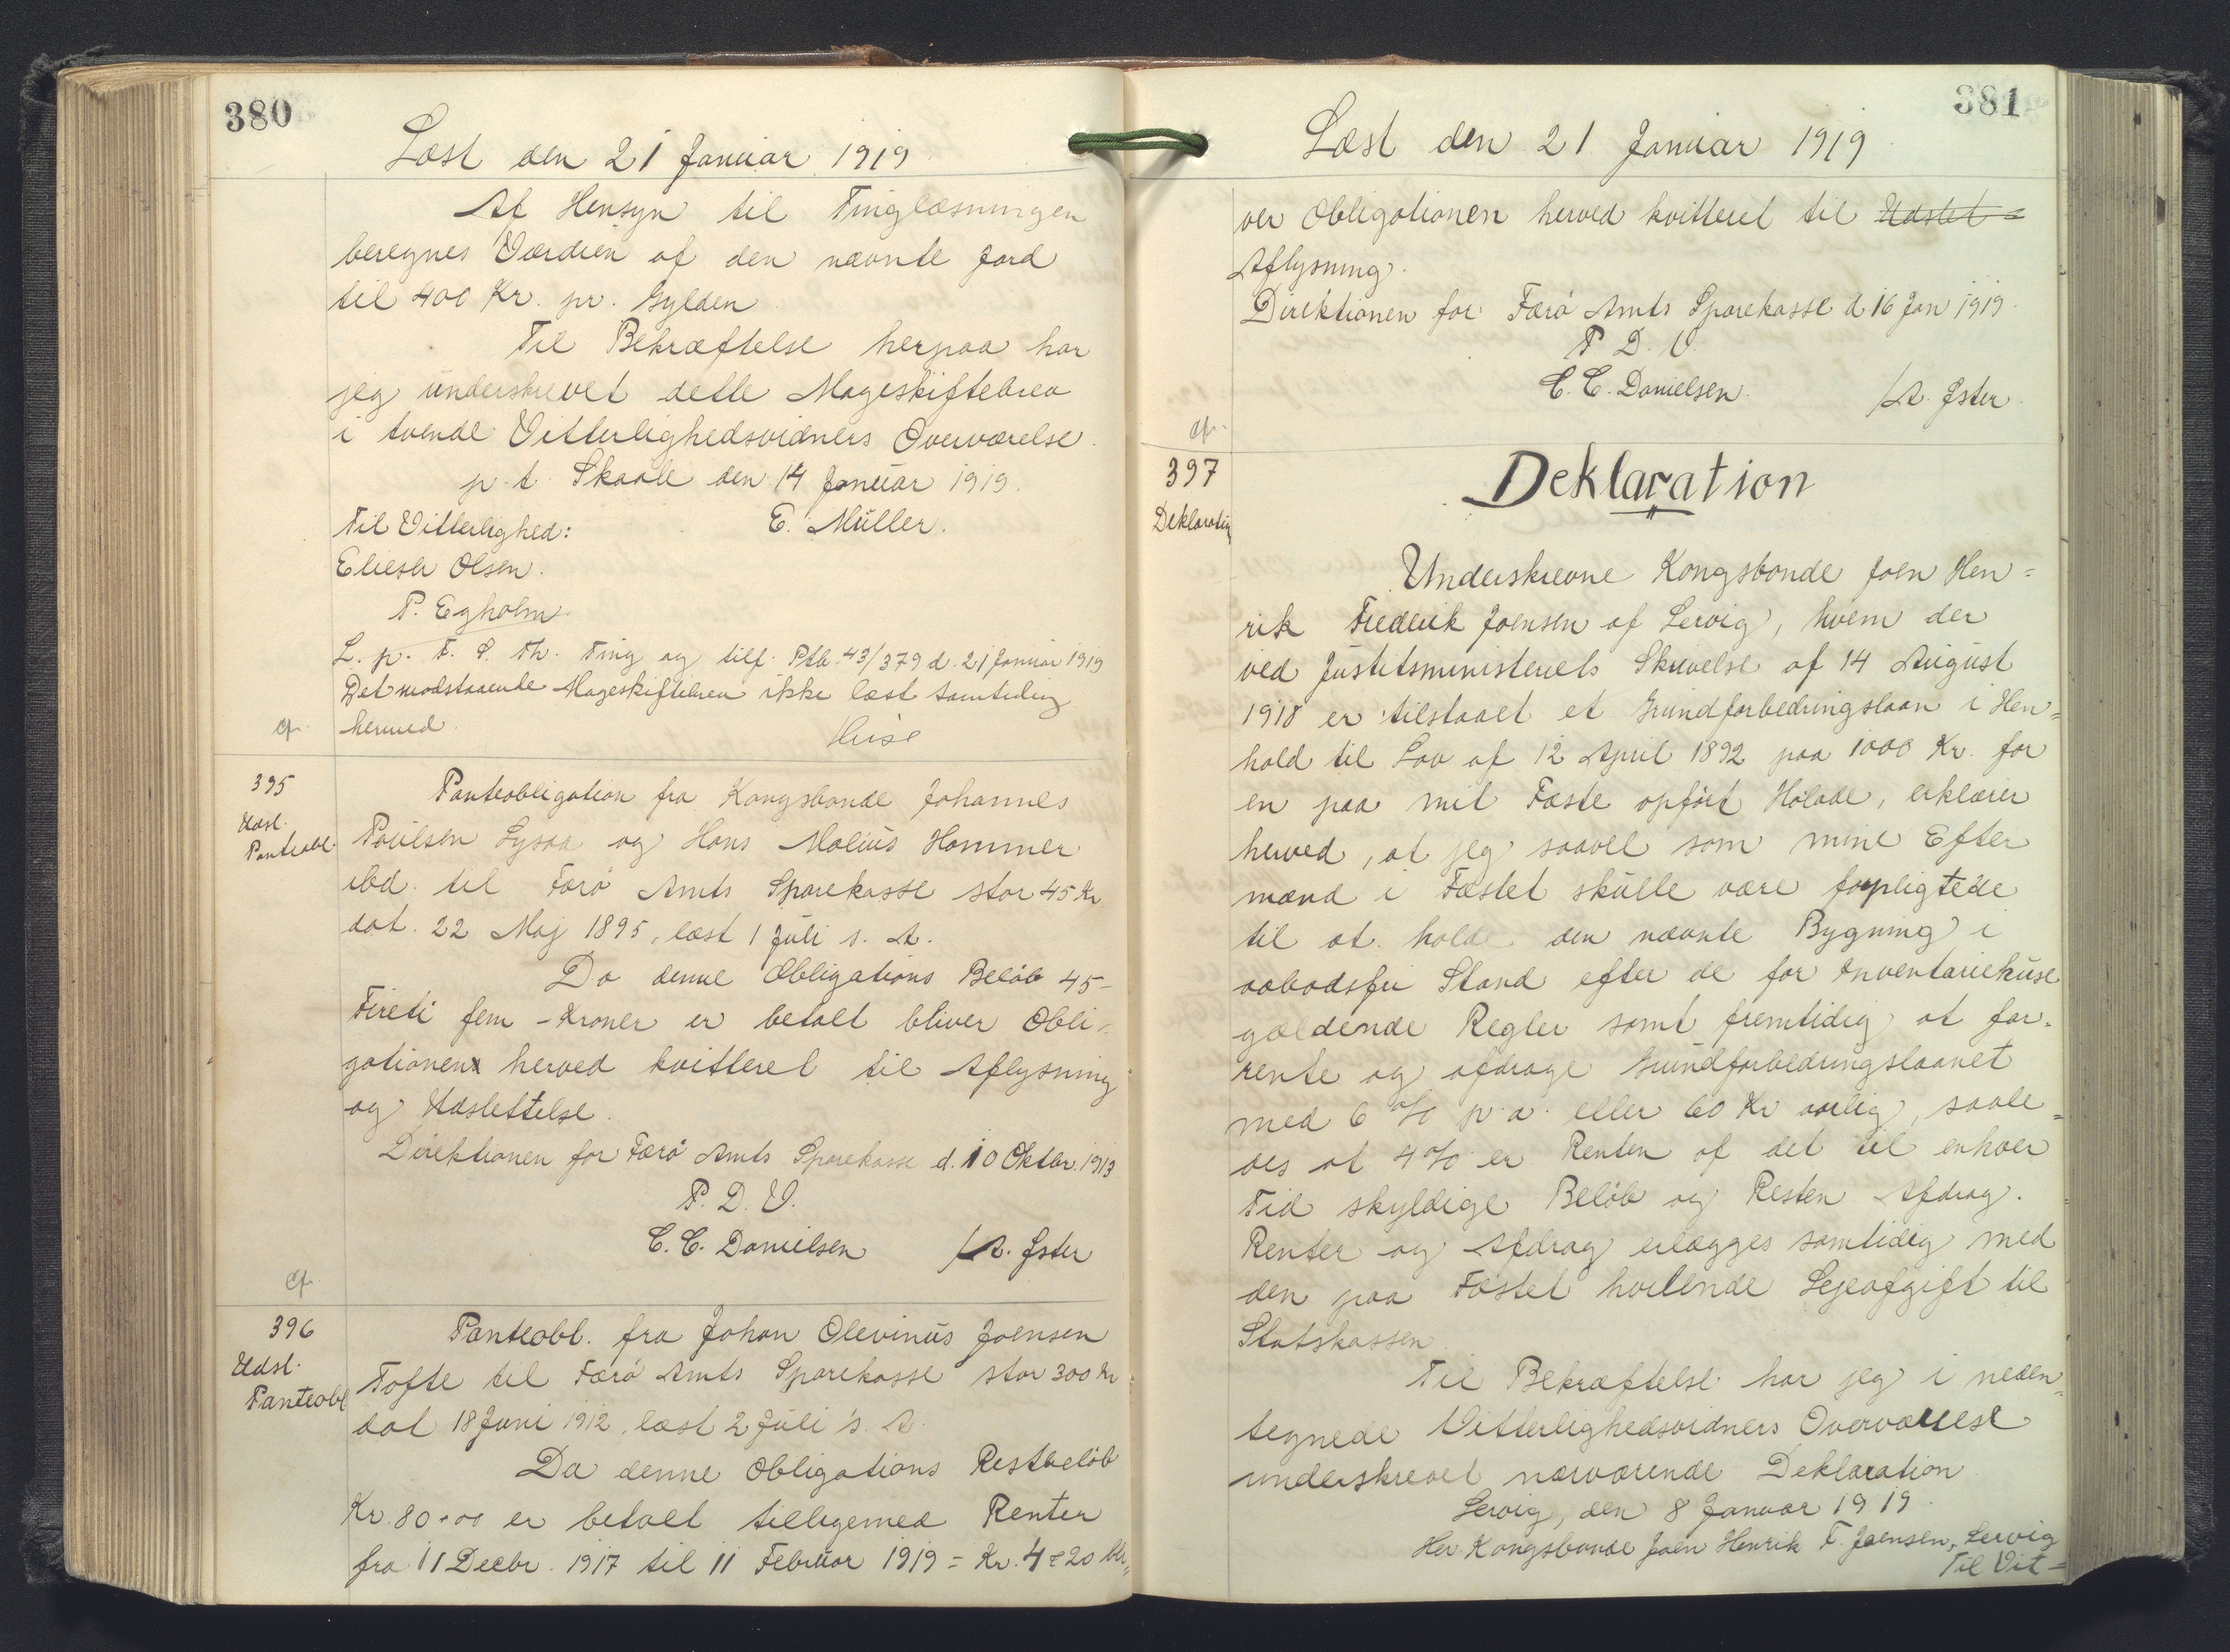 380
Læst den 21 Januar 1919
Af Hensyn til Tinglæsningen
beregnes Værdien af den nævnte Jord
til 400 Kr. pr. Gylden
Til Bekræftelse herpaa har
jeg underskrevet dette Mageskiftebrev
i tvende Vitterlighedsvidners Overværelse.
p. t. Skaale den 14 Januar 1919.
Til Vitterlighed:
E. Müller.
Eliesar Olsen.
P. Egholm.
L. p. F. S. Th. Ting og tilf. Ptb. 43/379 d. 21 Januar 1919
Det modstaaende Mageskiftebrev ikke læst samtidig
cfr.
hermed.
395
Udsl.
Panteobl.
Panteobligation fra Kongsbonde Johannes
Poulsen Lysaa og Hans Molius Hammer
ibd. til Færø Amts Sparekasse stor 45 Kr
dat. 22 Maj 1895, læst 1 Juli s. A.
Da denne Obligations Beløb 45-
Fireti fem - Kroner er betalt bliver Obli-
gationen herved kvitteret til Aflysning
og Udslettelse.
Direktionen for Færø Amts Sparekasse d. 10 Oktbr. 1913
P. D. V.
C. C. Danielsen /A. Ister
cfr.
396
Udsl.
Panteobl
Panteobl. fra Johan Olevinus Joensen
Tofte til Færø Amts Sparekasse stor 300 Kr
dat 18 Juni 1912, læst 2 Juli s. A.
Da denne Obligations Restbeløb
Kr. 80.00 er betalt tilligemed Renter
fra 11 Decbr. 1917 til 11 Februar 1919 = Kr. 4 20 bli-
381
Læst den 21 Januar 1919
ver Obligationen herved kvitteret til Udslet=
Aflysning.
Direktionen for Færø Amts Sparekasse d. 16 Jan 1919.
P. D. V.
C. C. Danielsen. /A. Ister.
cfr.
397
Deklaration
Deklaration
Underskrevne Kongsbonde Joen Hen=
rik Frederik Joensen af Lervig, hvem der
ved Justitsministeriets Skrivelse af 14 August
1918 er tilstaaet et Grundforbedringslaan i Hen=
hold til Lov af 12 April 1892 paa 1000 Kr. for
en paa mit Fæste opført Hølade, erklærer
herved, at jeg saavel som mine Efter
mænd i Fæstet skulle være forpligtede
til at holde den nævnte Bygning i
aabodsfri Stand efter de for Inventariehuse
gældende Regler samt fremtidig at for-
rente og afdrage Grundforbedringslaanet
med 6 % p. a. eller 60 Kr aarlig, saale=
des at 4% er Renten af det til enhver
Tid skyldige Beløb og Resten Afdrag.
Renter og Afdrag erlægges samtidig med
den paa Fæstet hvilende Lejeafgift til
Statskassen.
Til Bekræftelse har jeg i neden=
tegnede Vitterlighedsvidners Overværelse
underskrevet nærværende Deklaration
Lervig, den 8 Januar 1919.
Hr. Kongsbonde Joen Henrik F. Joensen, Lervig
Til Vit=